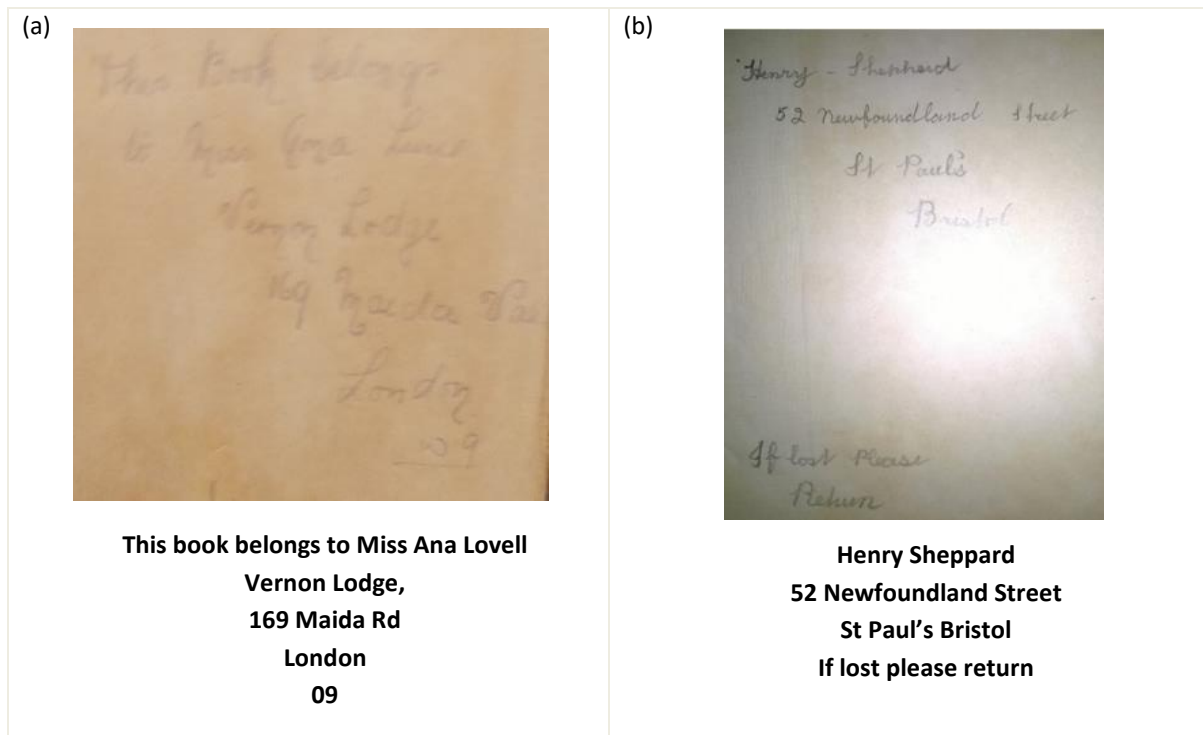 (a)
This Book belongs
to Miss
Vernon Lodge
169 Maida Vale
London
W9
This book belongs to Miss Ana Lovell
Vernon Lodge,
169 Maida Rd
London
09
(b)
Henry - Shepherd
52 Newfoundland Street
St Paul's
Bristol
If lost Please
Return
Henry Sheppard
52 Newfoundland Street
St Paul's Bristol
If lost please return